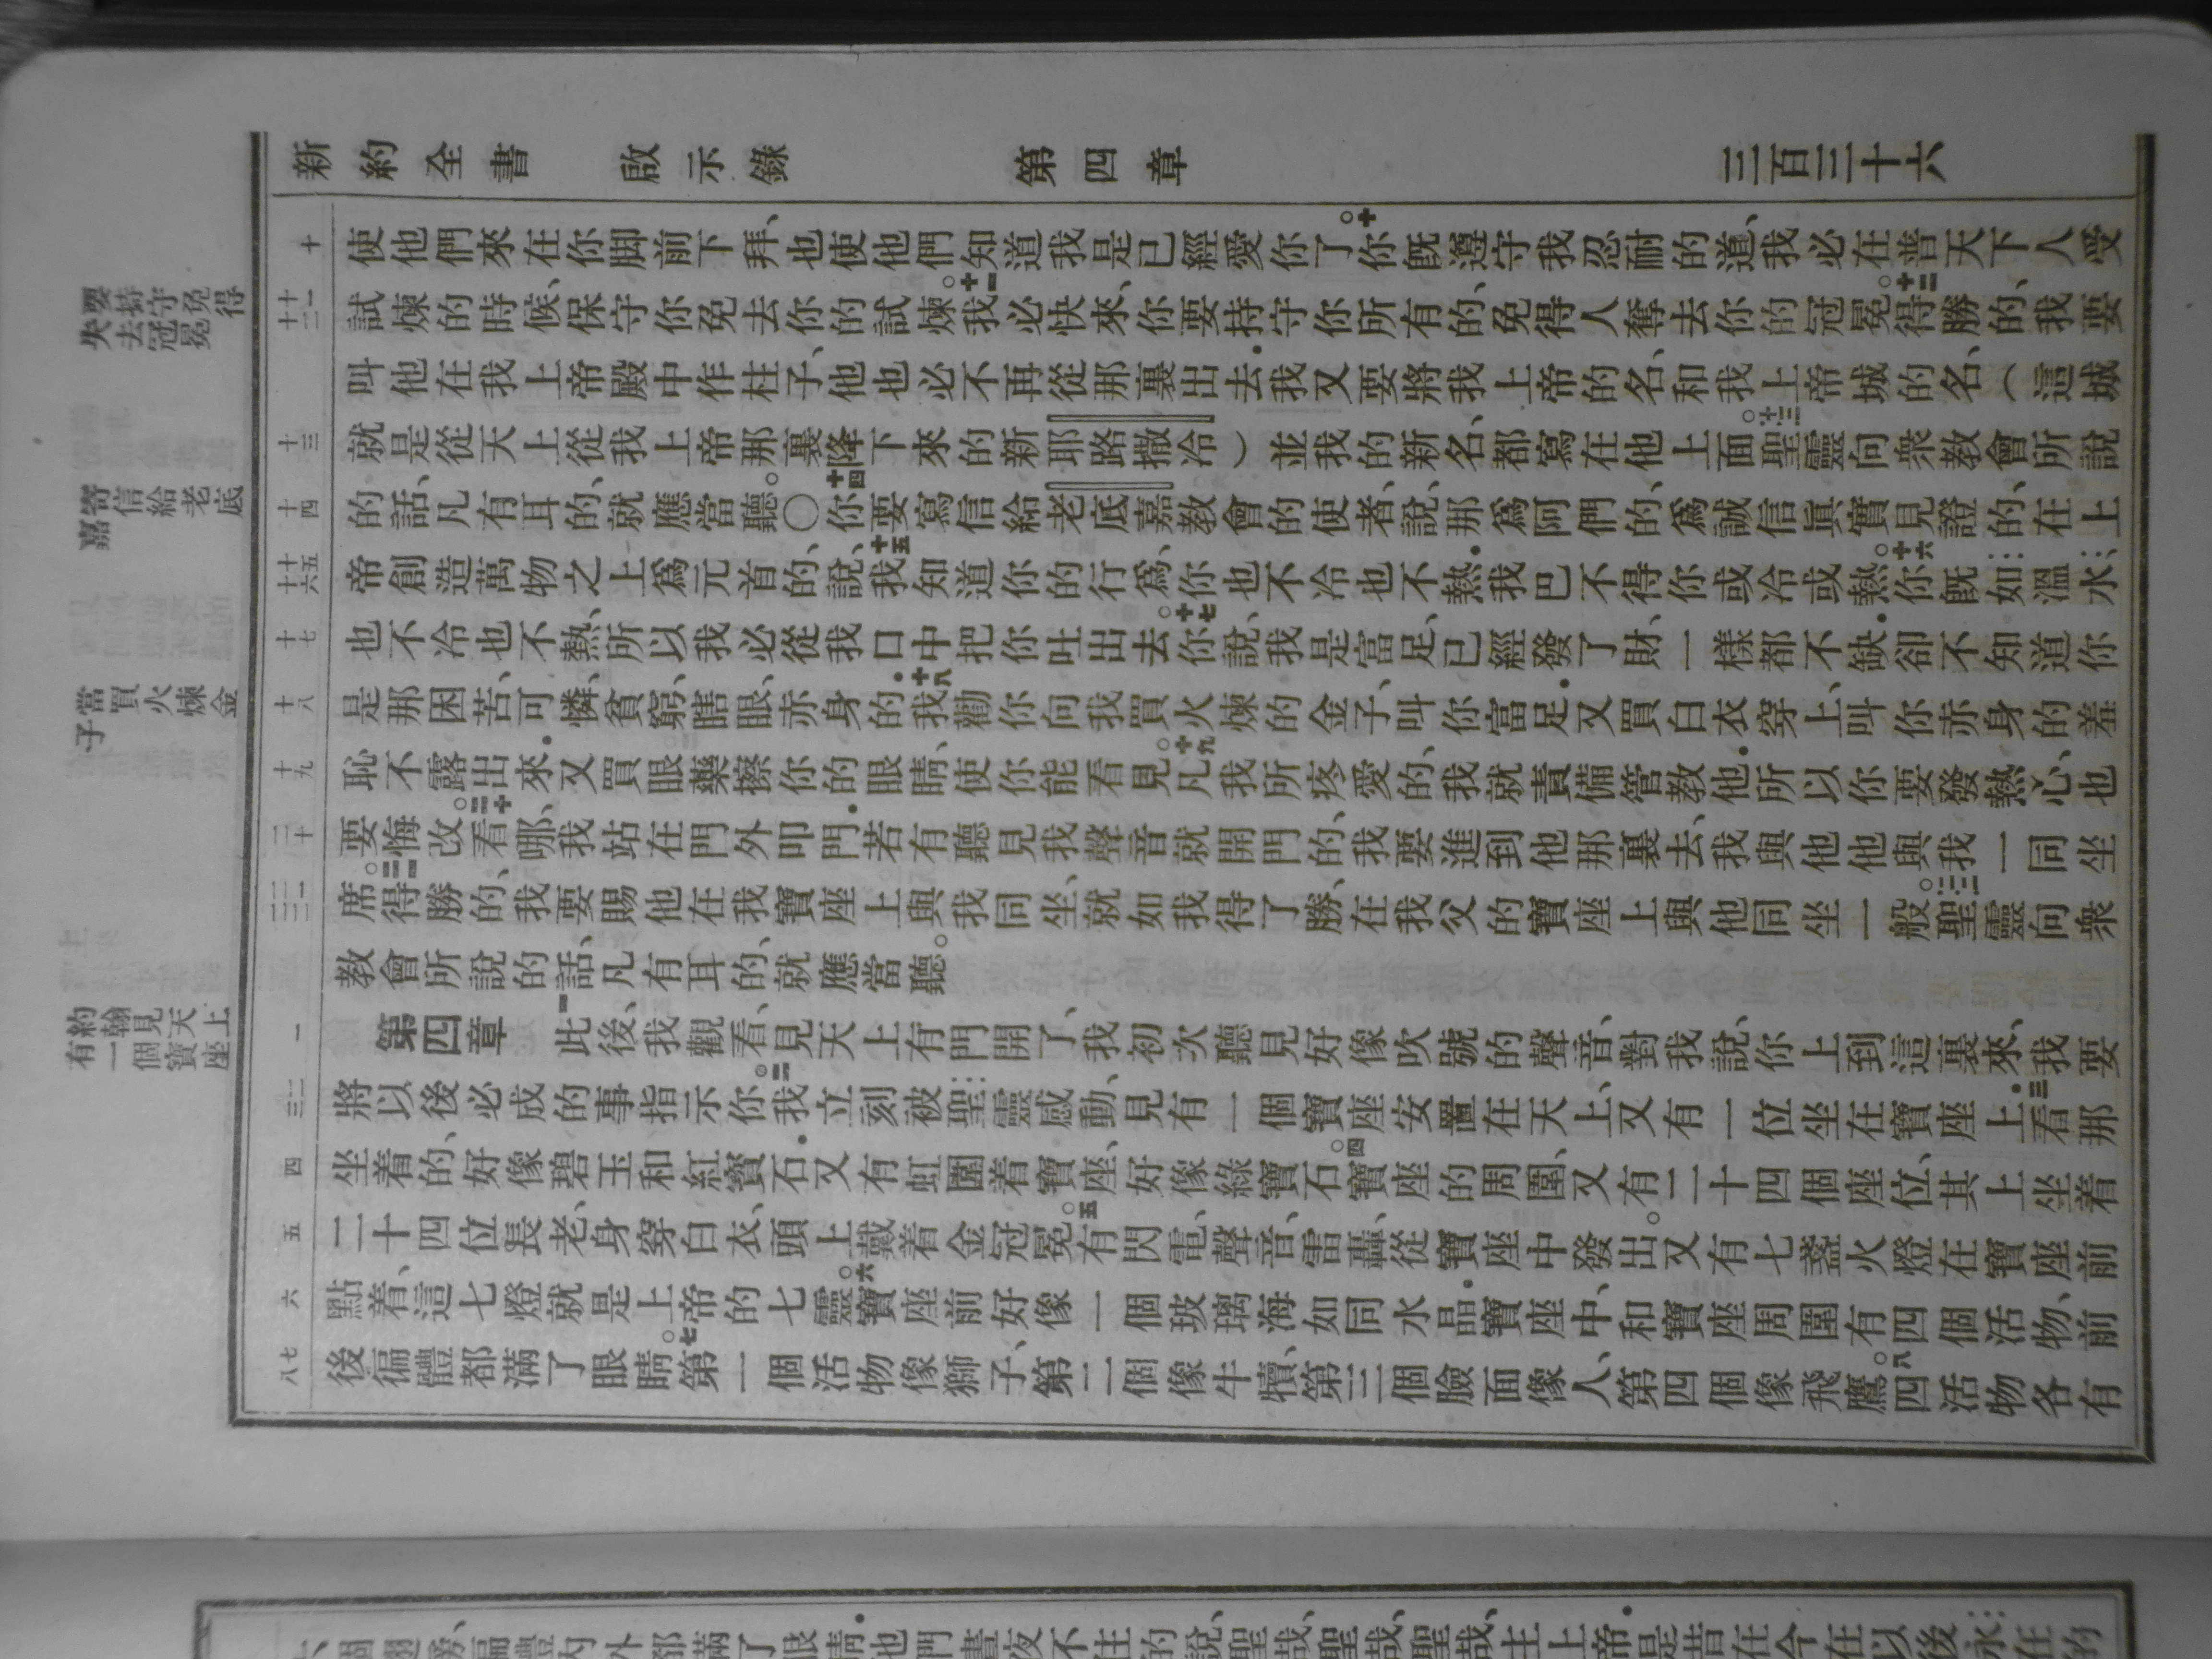 新約全書 啟示錄 第四章 三百三十六
十
十一 十二
十三
十四
十五 十六
十七
十八
十九
二十
二一 二二
一
二 三
四
五
六
七 八
要持守免得
失去冠冕
寄信給老底
嘉
當買火煉金
子
約翰見天上
有一個寶座
使他們來在你脚前下拜、也使他們知道我是已經愛你了。十你旣遵守我忍耐的道、我必在普天下人受
試煉的時候、保守你免去你的試煉。十一我必快來、你要持守你所有的、免得人奪去你的冠冕。十二得勝的、我要
叫他在我上帝殿中作柱子、他也必不再從那裏出去.我又要將我上帝的名、和我上帝城的名、（這城
就是從天上從我上帝那裏降下來的新耶路撒冷）並我的新名、都寫在他上面。十三聖靈向衆敎會所說
的話、凡有耳的、就應當聽。〇十四你要寫信給老底嘉敎會的使者、說、那爲阿們的、爲誠信眞實見證的、在上
帝創造萬物之上爲元首的、說、十五我知道你的行爲、你也不冷也不熱.我巴不得你或冷或熱。十六你旣如溫水、
也不冷也不熱、所以我必從我口中把你吐出去。十七你說、我是富足、已經發了財、一樣都不缺.卻不知道你
是那困苦、可憐、貧窮、瞎眼、赤身的.十八我勸你向我買火煉的金子、叫你富足.又買白衣穿上、叫你赤身的羞
恥不露出來.又買眼藥擦你的眼睛、使你能看見。十九凡我所疼愛的、我就責備管敎他.所以你要發熱心、也
要悔改。二十看哪、我站在門外叩門.若有聽見我聲音就開門的、我要進到他那裏去、我與他他與我一同坐
席。二一得勝的、我要賜他在我寶座上與我同坐、就如我得了勝、在我父的寶座上與他同坐一般。二二聖靈向衆
敎會所說的話、凡有耳的、就應當聽。
第四章 一此後、我觀看、見天上有門開了、我初次聽見好像吹號的聲音、對我說、你上到這裏來、我要
將以後必成的事指示你。二我立刻被聖靈感動、見有一個寶座安置在天上、又有一位坐在寶座上.三看那
坐着的、好像碧玉和紅寶石.又有虹圍着寶座、好像綠寶石。四寶座的周圍、又有二十四個座位、其上坐着
二十四位長老、身穿白衣、頭上戴着金冠冕。五有閃電、聲音、雷轟、從寶座中發出。又有七盞火燈在寶座前
點着、這七燈就是上帝的七靈。六寶座前好像一個玻璃海如同水晶.寶座中、和寶座周圍有四個活物、前
後徧體都滿了眼睛。七第一個活物像獅子、第二個像牛犢、第三個臉面像人、第四個像飛鷹。八四活物各有
個翅膀、徧體內外都滿了眼睛.他們晝夜不住的說、聖哉、聖哉、聖哉、主上帝.是昔在今在以後永在的